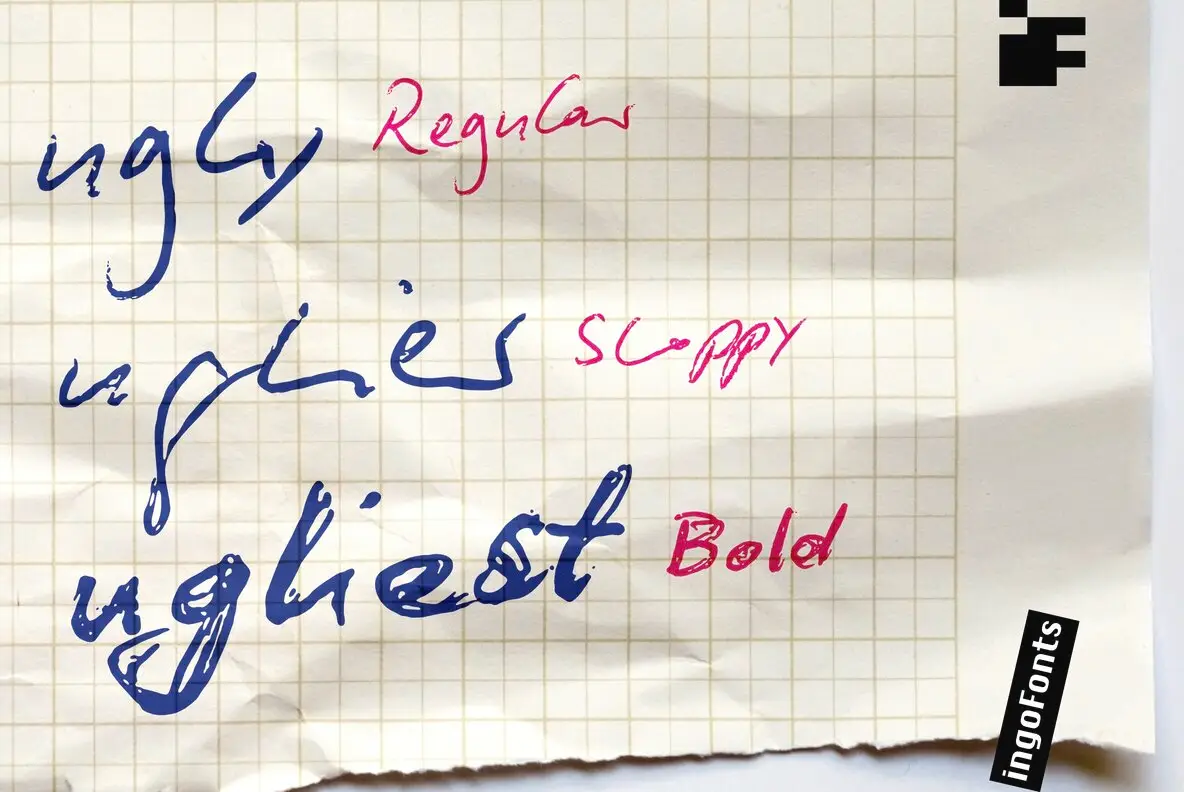 ugly Regular
uglier Sloppy
ugliest Bold
ingoFonts